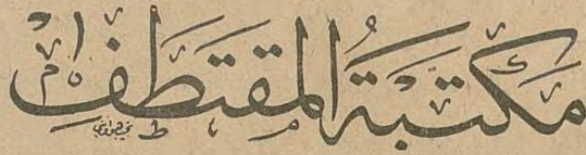 مكتبة المقتطف